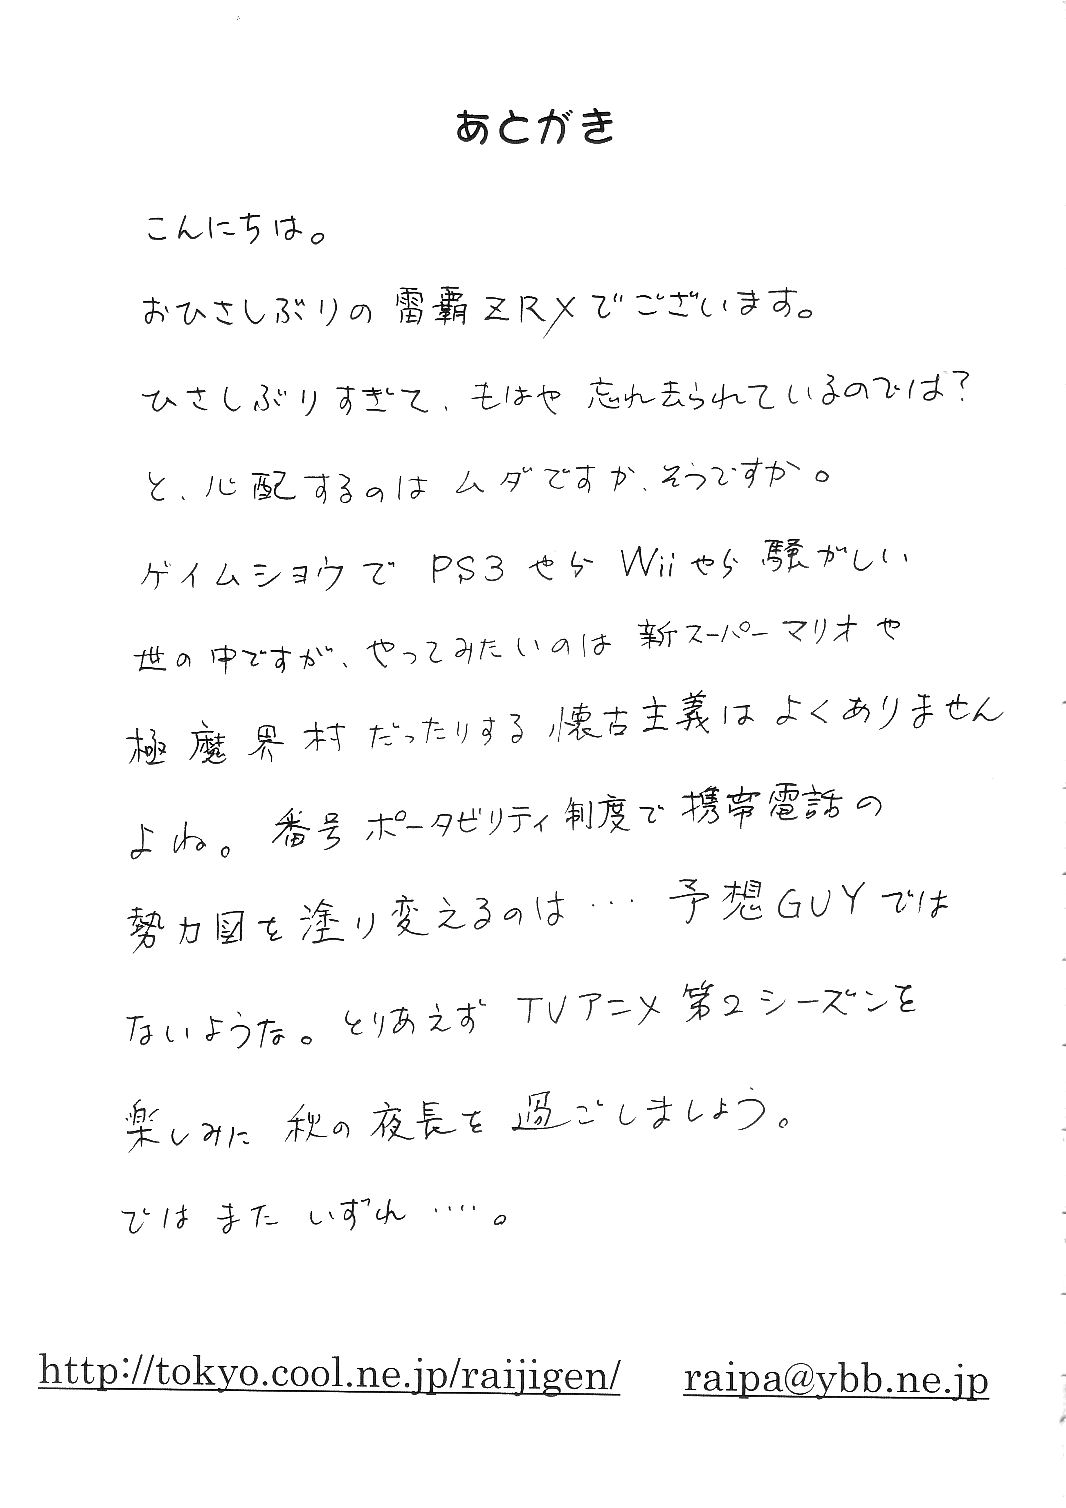 あとがき
こんにちは。
おひさしぶりの 雷覇ZRXでございます。
ひさしぶりすぎて、もはや 忘れ去られているのでは?
と、心配するのは ムダですか、そうですか。
ゲイムショウで PS3やら Wiiやら 騒がしい
世の中ですが、やってみたいのは 新スーパーマリオや
極魔界村だったりする 懐古主義は よくありません
よね。 番号ポータビリティ制度で 携帯電話の
勢力図を塗り変えるのは… 予想GUYでは
ないような。とりあえず TVアニメ 第2シーズンを
楽しみに 秋の夜長を 過ごしましょう。
では また いずれ ‥‥。
http://tokyo.cool.ne.jp/raijigen/ raipa@ybb.ne.jp